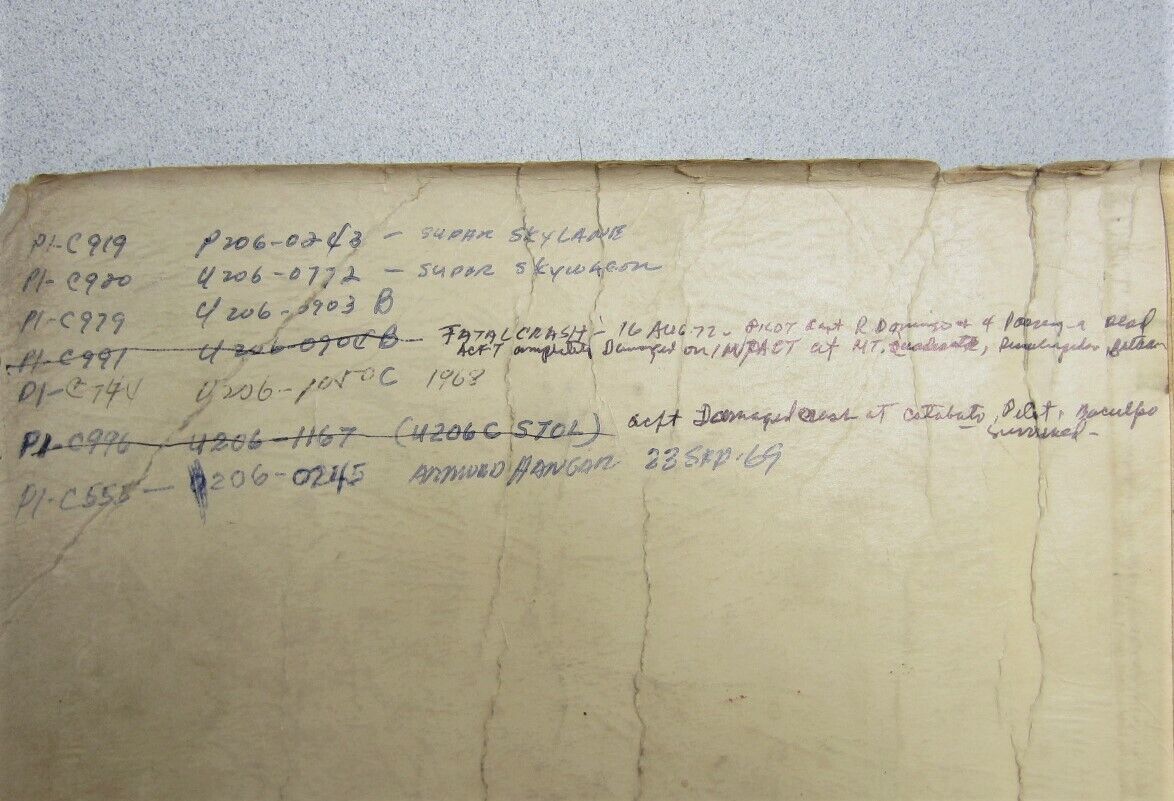 PI-C919 P206-0243 - SUPAR SKYLANE
PI-C920 U206-0772 - SUPAR SKYWAGON
PI-C979 U206-0903 B
PI-C991 U206-090 B - FATAL CRASH - 16 AUG 72 - PILOT Capt R. Domingo + 4 Dead
ACFT Damaged on IMPACT at MT.
PI-C74 U206-1050C 1968
PI-C996 U206-1167 (U206C STOL) acft Damaged at Cotabato, Pilot,
Survived -
PI-C558 - 206-0245 HANGAR 23 SEP. 69